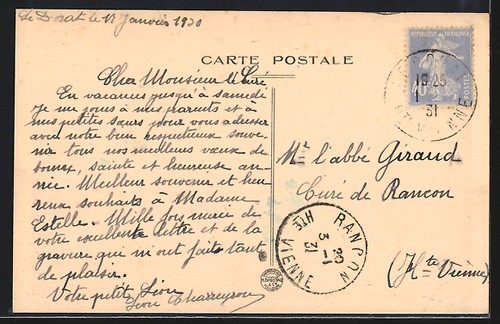 Le Dorat le 11 Janvier 1930
CARTE POSTALE
Cher Monsieur le Curé
En vacances jusqu'à samedi
je me joins à mes parents et à
mes petites sœurs pour vous adresser
avec notre bien respectueux souve-
nir tous nos meilleurs vœux de
bonne, sainte et heureuse an-
née. Meilleur souvenir et heu-
reux souhaits à Madame
Estelle. Mille fois merci de
votre excellente lettre et de la
gravure qui m'ont fait tant
de plaisir.
Votre petit Léon
Léon Charreyron
REPUBLIQUE FRANÇAISE
40
POSTES
31
Mr l'abbé Giraud
Curé de Rancon
(Hte Vienne)
RANCON
31
HTE VIENNE